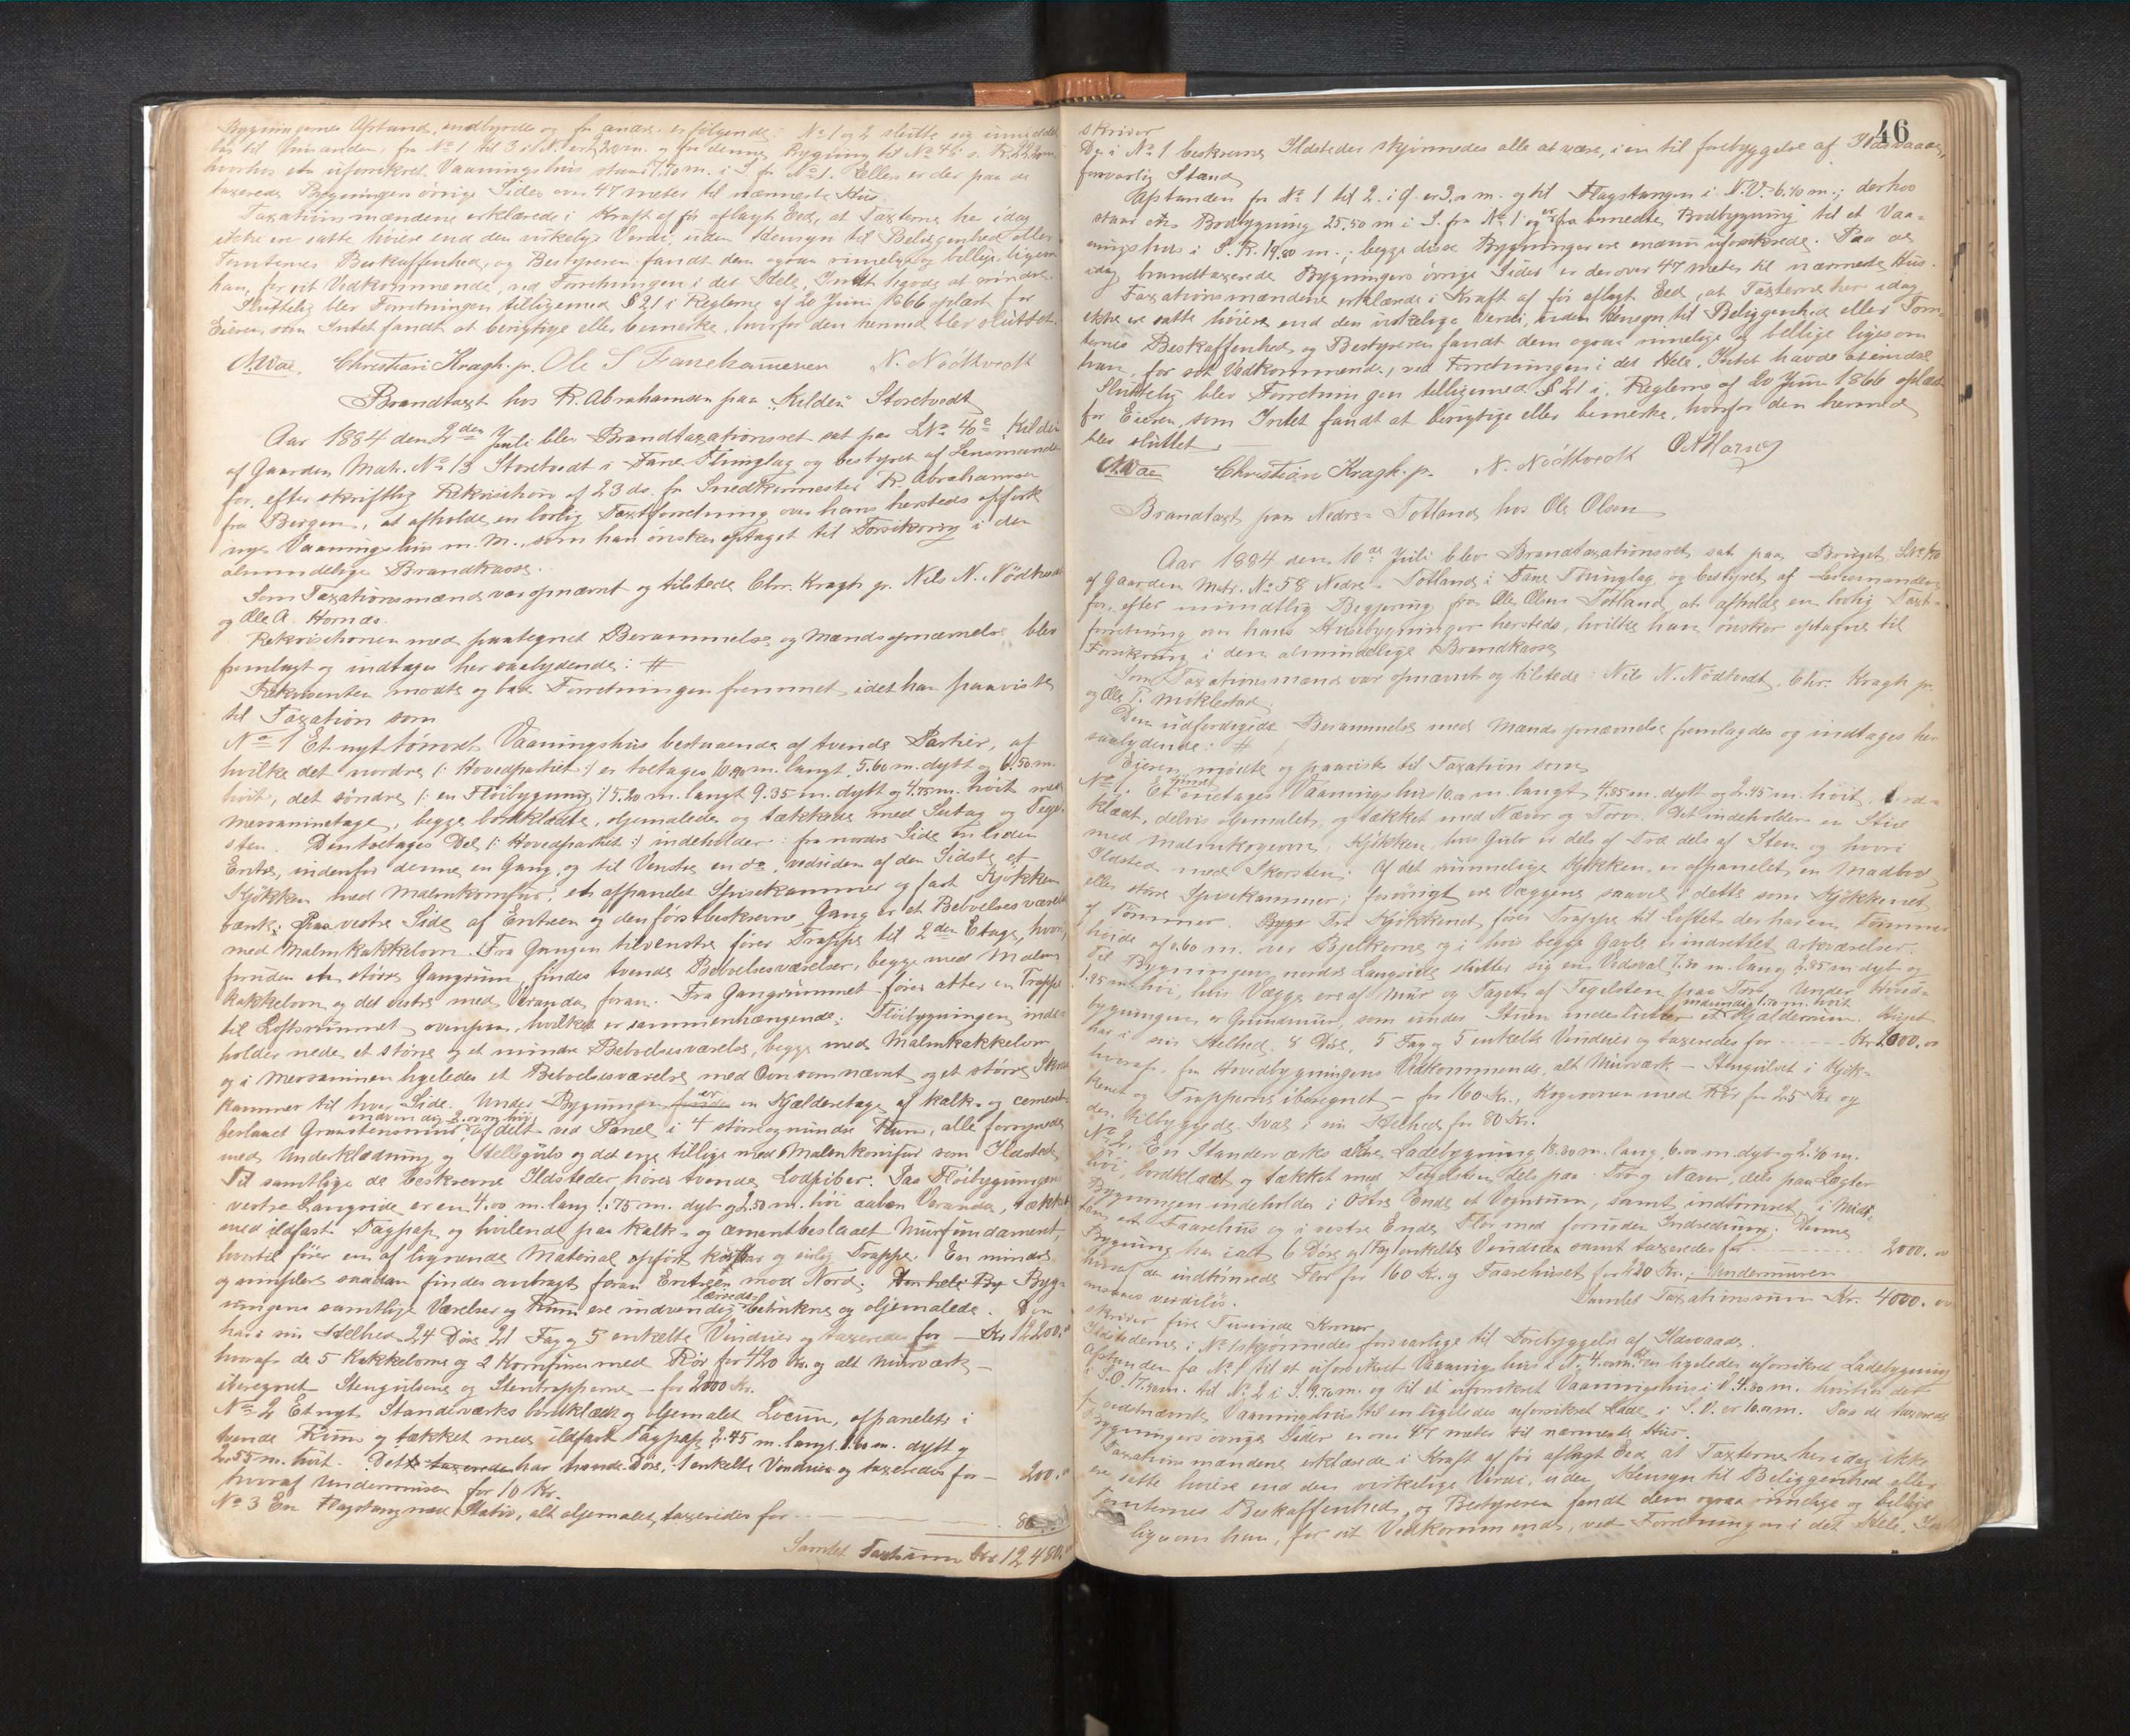 Bygningernes Afstand, indbyrdes og fra andre er følgende: No 1 og 2 slutte sig umiddel-
bar til hinanden, fra No 1 til 3 i N. er og fra denne Bygning til No
hvorhos et uforsikret Vaaningshus staar 7.70 m. i S. fra No 1. Ellers er der paa de
taxerede Bygningers øvrige Sider over 47 meter til nærmeste Hus.
Taxationsmændene erklærede i Kraft af før aflagt Eed, at Taxterne her idag
ikke ere satte høiere end den virkelige Verdi, uden Hensyn til Beliggenhed eller
Tomternes Beskaffenhed, og Bestyreren fandt dem ogsaa rimelige og billige, ligesom
han, for sit Vedkommende, ved Forretningen i det Hele, Intet havde at erindre.
Sluttelig blev Forretningen tilligemed § 21 i Reglerne af 20 Juni 1866 oplæst for
Eieren, som Intet fandt at berigtige eller bemerke, hvorfor den hermed blev sluttet.
Christian Kragh. jr. Ole S Fanehameren N. Nödtvedt
Brandtaxt hos R. Abrahamsen paa "Kilden" Storetvedt
Aar 1884 den 2den Juli blev Brandtaxationsret sat paa LNo 40c "Kilden"
af Gaarden Matr. No 13 Storetvedt i Fane Thinglag og bestyret af Lensmanden
for, efter skriftlig Rekvisition af 23 ds. fra Snedkermester R. Abrahamsen
fra Bergen, at afholde en lovlig Taxtforretning over hans hersteds opførte
nye Vaaningshus m. M., som han ønsker optaget til Forsikring i den
almindelige Brandkasse.
Som Taxationsmænd var opnævnt og tilstede Chr. Kragh jr. Nils N. Nödtvedt
og Ole A. Hornæs.
Rekvisitionen med paategnet Berammelse og Mandsopnævnelse blev
fremlagt og indtages her saalydende: #
Rekvirenten mødte og bad Forretningen fremmet, idet han paaviste
til Taxation som
No 1 Et nyt tømret Vaaningshus bestaaende af tvende Partier, af
hvilke det nordre (: Hovedpartiet :) er toetages 10.90 m. langt, 5.60 m. dybt og 6.50 m.
høit, det søndre (: en Fløibygning :) 5.20 m. langt 9.35 m. dybt og 4.75 m. høit med
Messaninetage, begge bordklædte, oljemalede og tækkede med Sutag og Tegl-
sten. Den toetages Del (: Hovedpartiet :) indeholder: fra nordre Side en liden
Entre, indenfor denne en Gang, og til Venstre en do, vedsiden af den Sidste et
Kjøkken med Malmkomfur, et afpanelet Spisekammer og fast Kjøkken
bænk; Paa vestre Side af Entreen og den førstbeskrevne Gang er et Beboelsesværelse
med Malmkakkelovn. Fra Gangen tilvenstre fører Trappe til 2den Etage, hvor,
foruden et større Gangrum, findes tvende Beboelsesværelser, begge med Malm-
kakkelovn og det vestre med Veranda foran. Fra Gangrummet fører atter en Trappe
til Loftsrummet ovenpaa, hvilket er sammenhængende; Fløibygningen inde-
holder nede et større og et mindre Beboelsesværelse, begge med Malmkakkelovn
og i Messaninen ligeledes et Beboelsesværelse med Ovn som nævnt og et større
kammer til hver Side. Under Bygningen findes er en Kjælderetage af kalk- og cement-
beslaaet Graastensmur indvendig 2.00 m. høi, afdelt ved Panel i 4 større og mindre Rum, alle forsynede
med Underklædning og Hellegulv og det ene tillige med Malmkomfur som Ildsted.
Til samtlige de beskrevne Ildsteder hører tvende Lodpiber. Paa Fløibygningens
vestre Langside er en 4.00 m. lang 1.75 m. dyb og 2.50 m. høi aaben Veranda, tækket
med ildfast Tagpap og hvilende paa kalk- og cementbeslaaet Murfundament,
hvortil fører en af lignende Material opført Trappe. En mindre
og simplere saadan findes anbragt foran Entreen mod Nord. Den hele By Byg-
ningens samtlige Værelser og Rum ere indvendig betrukne og oljemalede. Den
har i sin Helhed 24 Døre 21 Fag og 5 enkelte Vinduer og taxeredes for — Kr 12200.00
hvoraf de 5 Kakkelovne og 2 Komfurer med Rør for 420 Kr. og alt Murværk —
iberegnet Stengulvene og Stentrapperne — for 2000 Kr.
No 2 Et nyt Standerværks bordklædt og oljemalet Locum, afpanelet i
tvende Rum og tækket med ildfast Tagpap, 2.45 m. langt m. dybt og
2.55 m. høit. Det taxeredes har tvende Døre, 1 enkelte Vindue og taxeredes for — 200.00
hvoraf Undermuren for 10 Kr.
No 3 En Flagstang med Stativ, alt oljemalet, taxeredes for — 80
Samlet Taxtsum Kr 12480.00
46
skriver
De i No 1 beskrevne Ildsteder skjønnedes alle at være, i en til forebyggelse af Ildsvaade,
forsvarlig Stand.
Afstanden fra No 1 til 2 i er m. og til Flagstangen i N.V. 6.40 m.; derhos
staar et Bodbygning 25.50 m i S. fra No 1 og er fra bemeldte Bodbygning til et Vaa-
ningshus i 19.80 m.; begge disse Bygninger ere endnu uforsikrede. Paa de
idag brandtaxerede Bygningers øvrige Sider er der over 47 meter til nærmeste Hus.
Taxationsmændene erklærede i Kraft af før aflagt Eed, at Taxterne her idag
ikke ere satte høiere end den virkelige Verdi, uden Hensyn til Beliggenhed eller Tom-
ternes Beskaffenhed, og Bestyreren fandt dem ogsaa rimelige og billige ligesom
han, for sit Vedkommende, ved Forretningen i det Hele, Intet havde at erindre.
Sluttelig blev Forretningen tilligemed § 21 i Reglerne af 20 Juni 1866 oplæst
for Eieren, som Intet fandt at berigtige eller bemerke, hvorfor den hermed
blev sluttet.
Christian Kragh. jr. N. Nödtvedt
Brandtaxt paa Nedre-Totland hos Ole Olsen
Aar 1884 den 10de Juli blev Brandtaxationsret sat paa Bruget LNo 170
af Gaarden Matr. No 58 Nedre-Totland i Fane Thinglag og bestyret af Lensmanden
for, efter mundtlig Begjering fra Ole Olsen Totland at afholde en lovlig Taxt-
forretning over hans Husebygninger hersteds, hvilke han ønsker optagne til
Forsikring i den almindelige Brandkasse
Som Taxationsmænd var opnævnt og tilstede: Nils N. Nödtvedt, Chr. Kragh jr.
og Ole T. Møklestad.
Den udfærdigede Berammelse med Mandsopnævnelse fremlagdes og indtages her
saalydende: #
Eieren mødte og paaviste til Taxation som
No 1. Et tømret enetages Vaaningshus 10.0 m. langt 4.85 m. dybt og 2.45 m. høit, bord-
klædt, delvis oljemalet, og tækket med Næver og Torv. Det indeholder en Stue
med Malmkogeovn, Kjøkken, hvis Gulv er dels af Træ dels af Sten og hvori
Ildsted med Skorsten. Af det rummelige Kjøkken er afpanelet en Madbod
eller større Spisekammer; forøvrigt ere Væggene saavel i dette som Kjøkkenet
af Tømmer. Bygn Fra Kjøkkenet fører Trappe til Loftet der har en Tømmer
høide af 0.60 m. over Bjelkerne og i hvis begge Gavle er indrettet Arkværelser.
Til Bygningens nordre Langside slutter sig en Vedsval 7.30 m. lang 2.85 m dyb og
1.95 m. høi, hvis Vægge ere af Mur og Taget af Teglsten paa Træ. Under Hoved-
bygningen er Grundmur, som under Stuen indeslutter et indvendig 1.70 m. høit Kjælderrum. Huset
har i sin Helhed 8 Døre, 5 Fag og 5 enkelte Vinduer og taxeredes for — Kr. 2000.00
hvoraf, for Hovedbygningens Vedkommende, alt Murværk — Stengulvet i Kjøk-
kenet og Trapperne iberegnet — for 160 Kr., Kogeovnen med Rør for 25 Kr. og
den tilbyggede Sval i sin Helhed for 80 Kr.
No 2. En Standerværks Ladebygning 18.30 m. lang 6.00 m. dyb og 2.40 m.
høi, bordklædt og tækket med Teglsten, dels paa Træ og Næver, dels paa Lægter
Bygningen indeholder i Østre Ende et Vognrum, samt indtømret, i Midt-
en et Faarehus og i vestre Ende Flor med fornøden Indredning. Denne
Bygning har ialt 6 Døre og 1 Fag enkelte Vinduer samt taxeredes for — 2000.00
hvoraf den indtømrede Flor for 160 Kr. og Faarehuset for 120 Kr.; Undermuren
ansaaes verdiløs.
Samlet Taxationssum Kr. 4000.00
skriver fire Tusinde Kroner
Ildstederne i No 1 skjønnedes forsvarlige til Forebyggelse af Ildsvaade.
Afstanden fra No 1 til et uforsikret Vaaningshus i N. 4. en ligeledes uforsikret Ladebygning
i S.O. 17.50 m. til No 2 i S. 9.70 m. og til et uforsikret Vaaningshus i V. 4.30 m. hvorhos der
fra sidstnævnte Vaaningshus til en ligeledes uforsikret Lade i S.V. er 10.0 m. Paa de taxerede
Bygningers øvrige Sider er over 47 meter til nærmeste Hus.
Taxationsmændene erklærede i Kraft af før aflagt Eed, at Taxterne her idag ikke
ere satte høiere end den virkelige Verdi, uden Hensyn til Beliggenhed eller
Tomternes Beskaffenhed, og Bestyreren fandt dem ogsaa rimelige og billige
ligesom han, for sit Vedkommende, ved Forretningen i det Hele, Intet